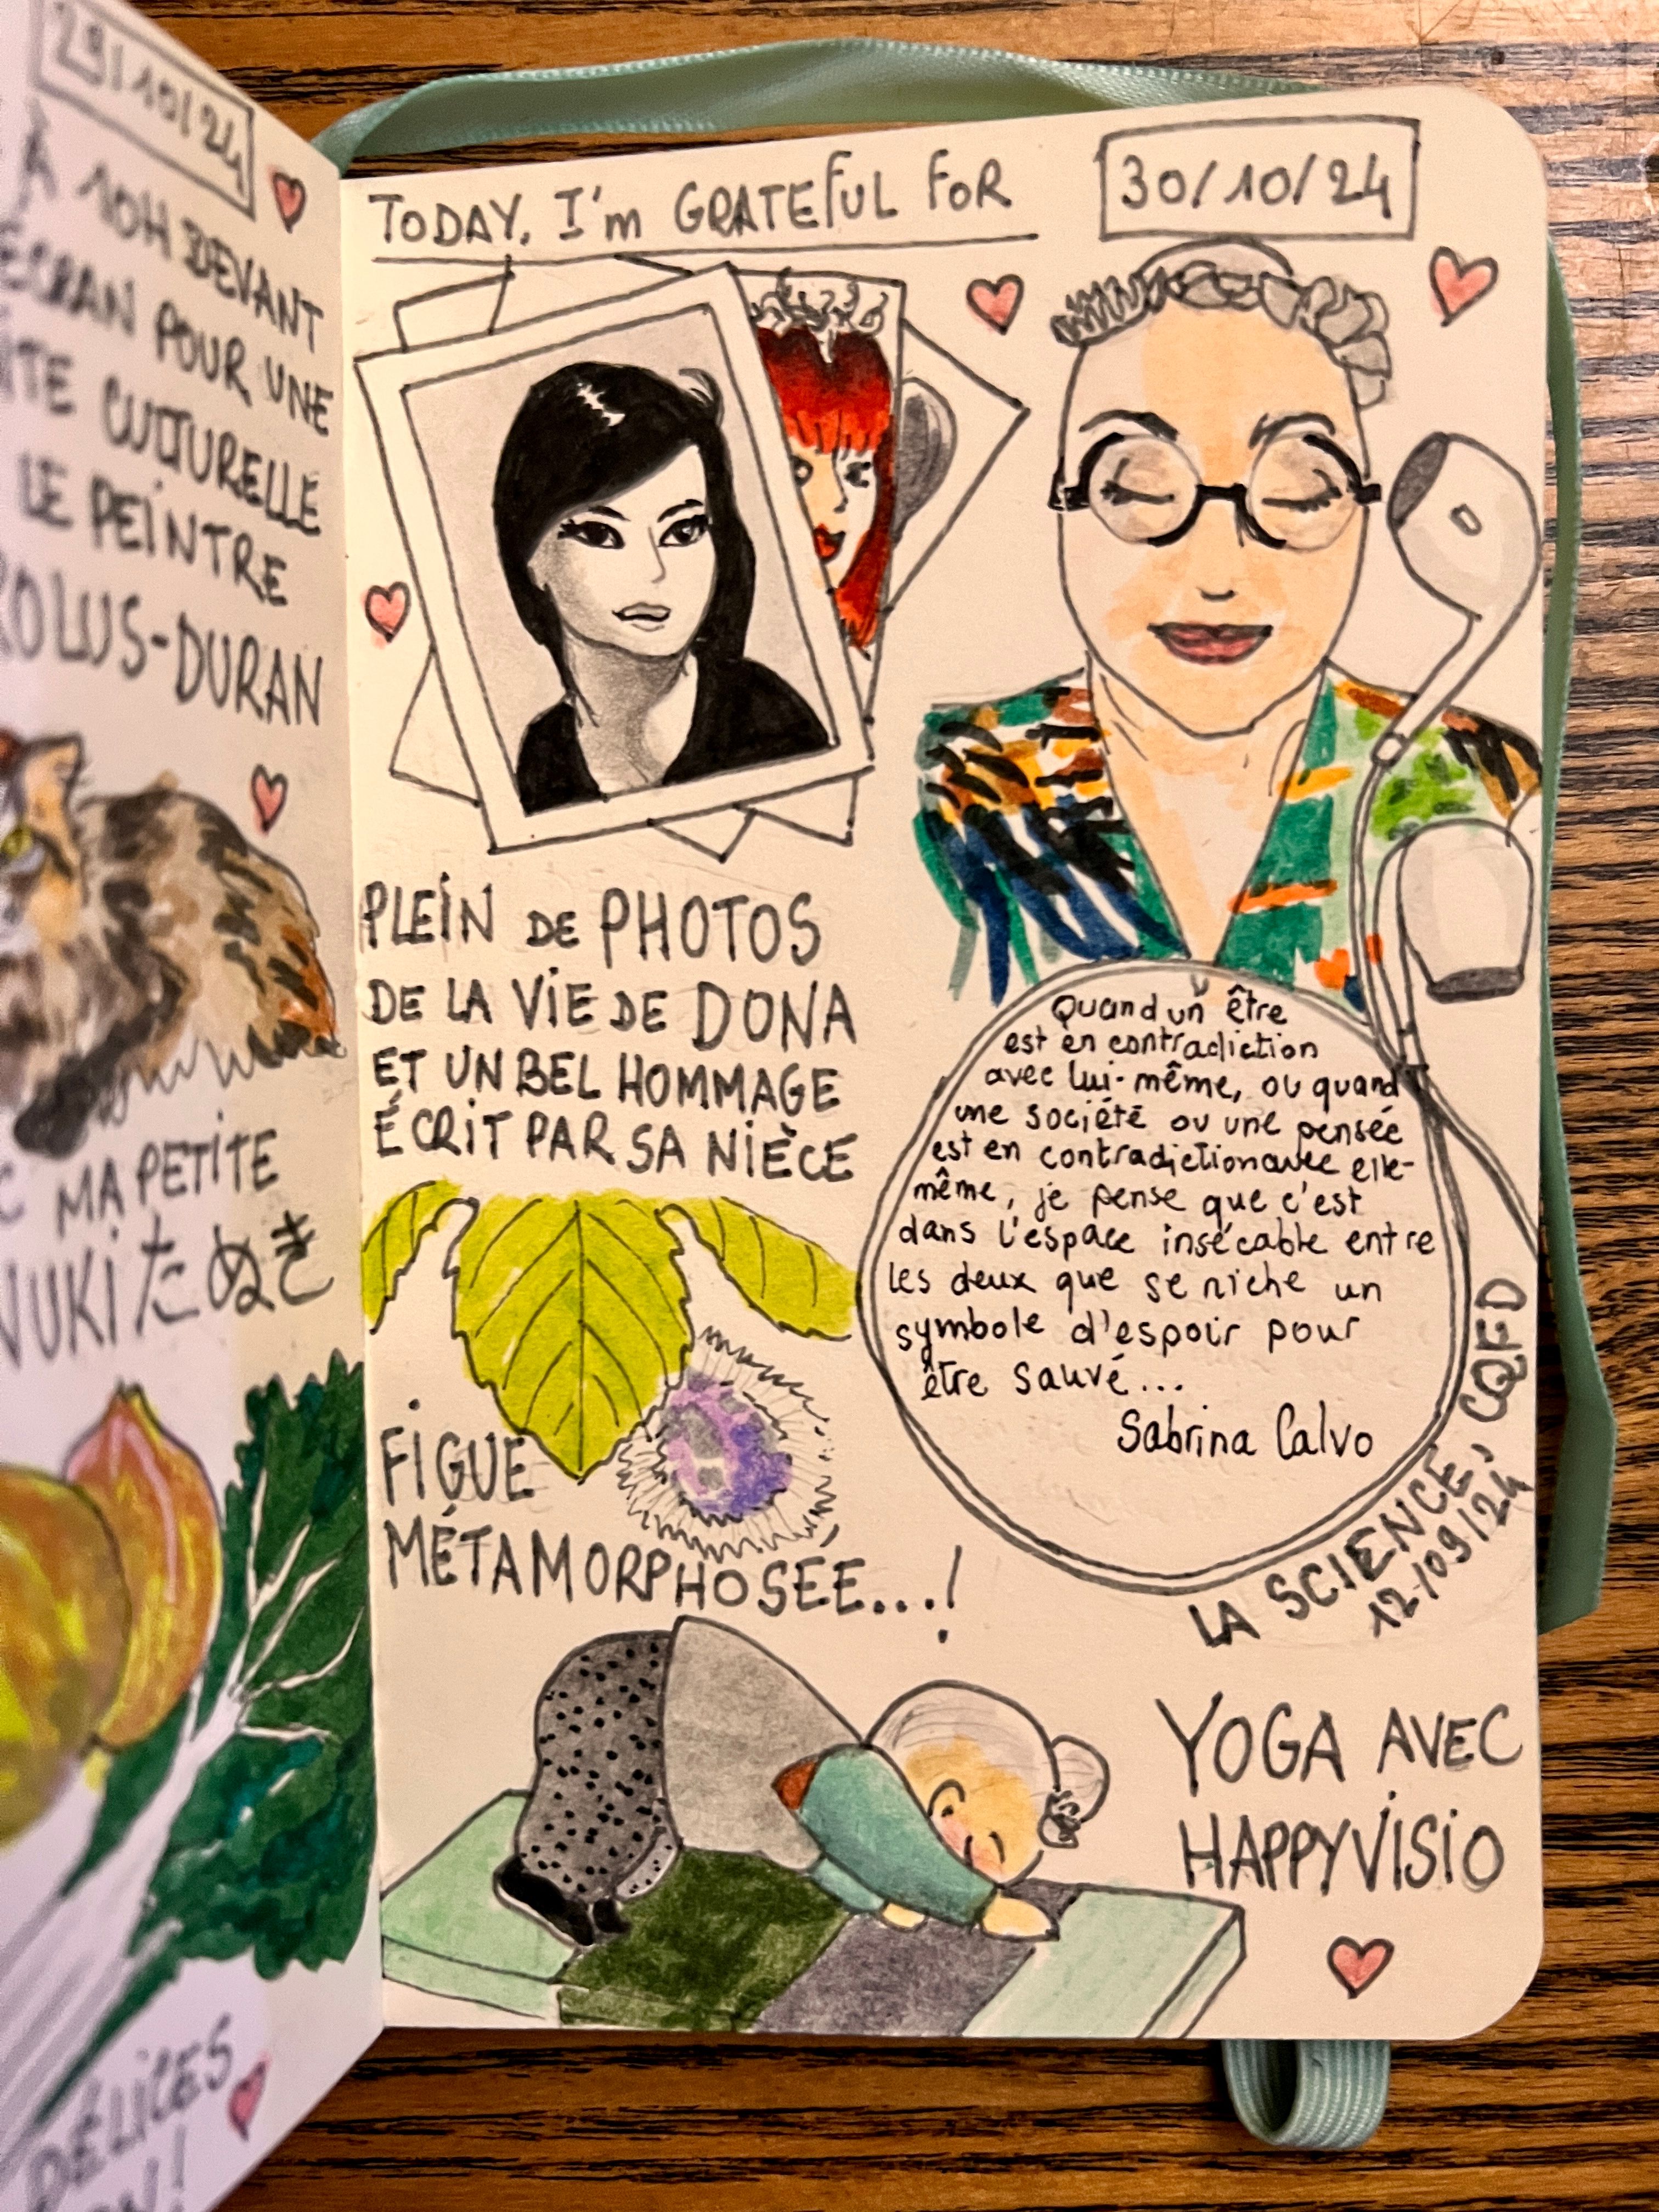 29/10/24
À 10H DEVANT
ÉCRAN POUR UNE
CULTURELLE
LE PEINTRE
OLUS-DURAN
MA PETITE
NUKI たぬき
DÉLICES
TODAY, I'm GRATEFUL FOR
30/10/24
PLEIN DE PHOTOS
DE LA VIE DE DONA
ET UN BEL HOMMAGE
ÉCRIT PAR SA NIÈCE
FIGUE
MÉTAMORPHOSEE...!
Quand un être
est en contradiction
avec lui-même, ou quand
une société ou une pensée
est en contradiction avec elle-
même, je pense que c'est
dans l'espace insécable entre
les deux que se niche un
symbole d'espoir pour
être sauvé...
Sabrina Calvo
LA SCIENCE, CQFD
12/09/24
YOGA AVEC
HAPPYVISIO